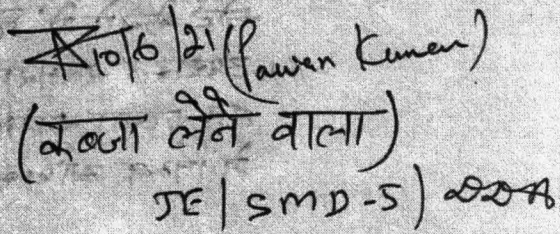 10/6/21 (Pawan Kumar)
(कब्जा लेने वाला)
JE/SMD-5) DDA